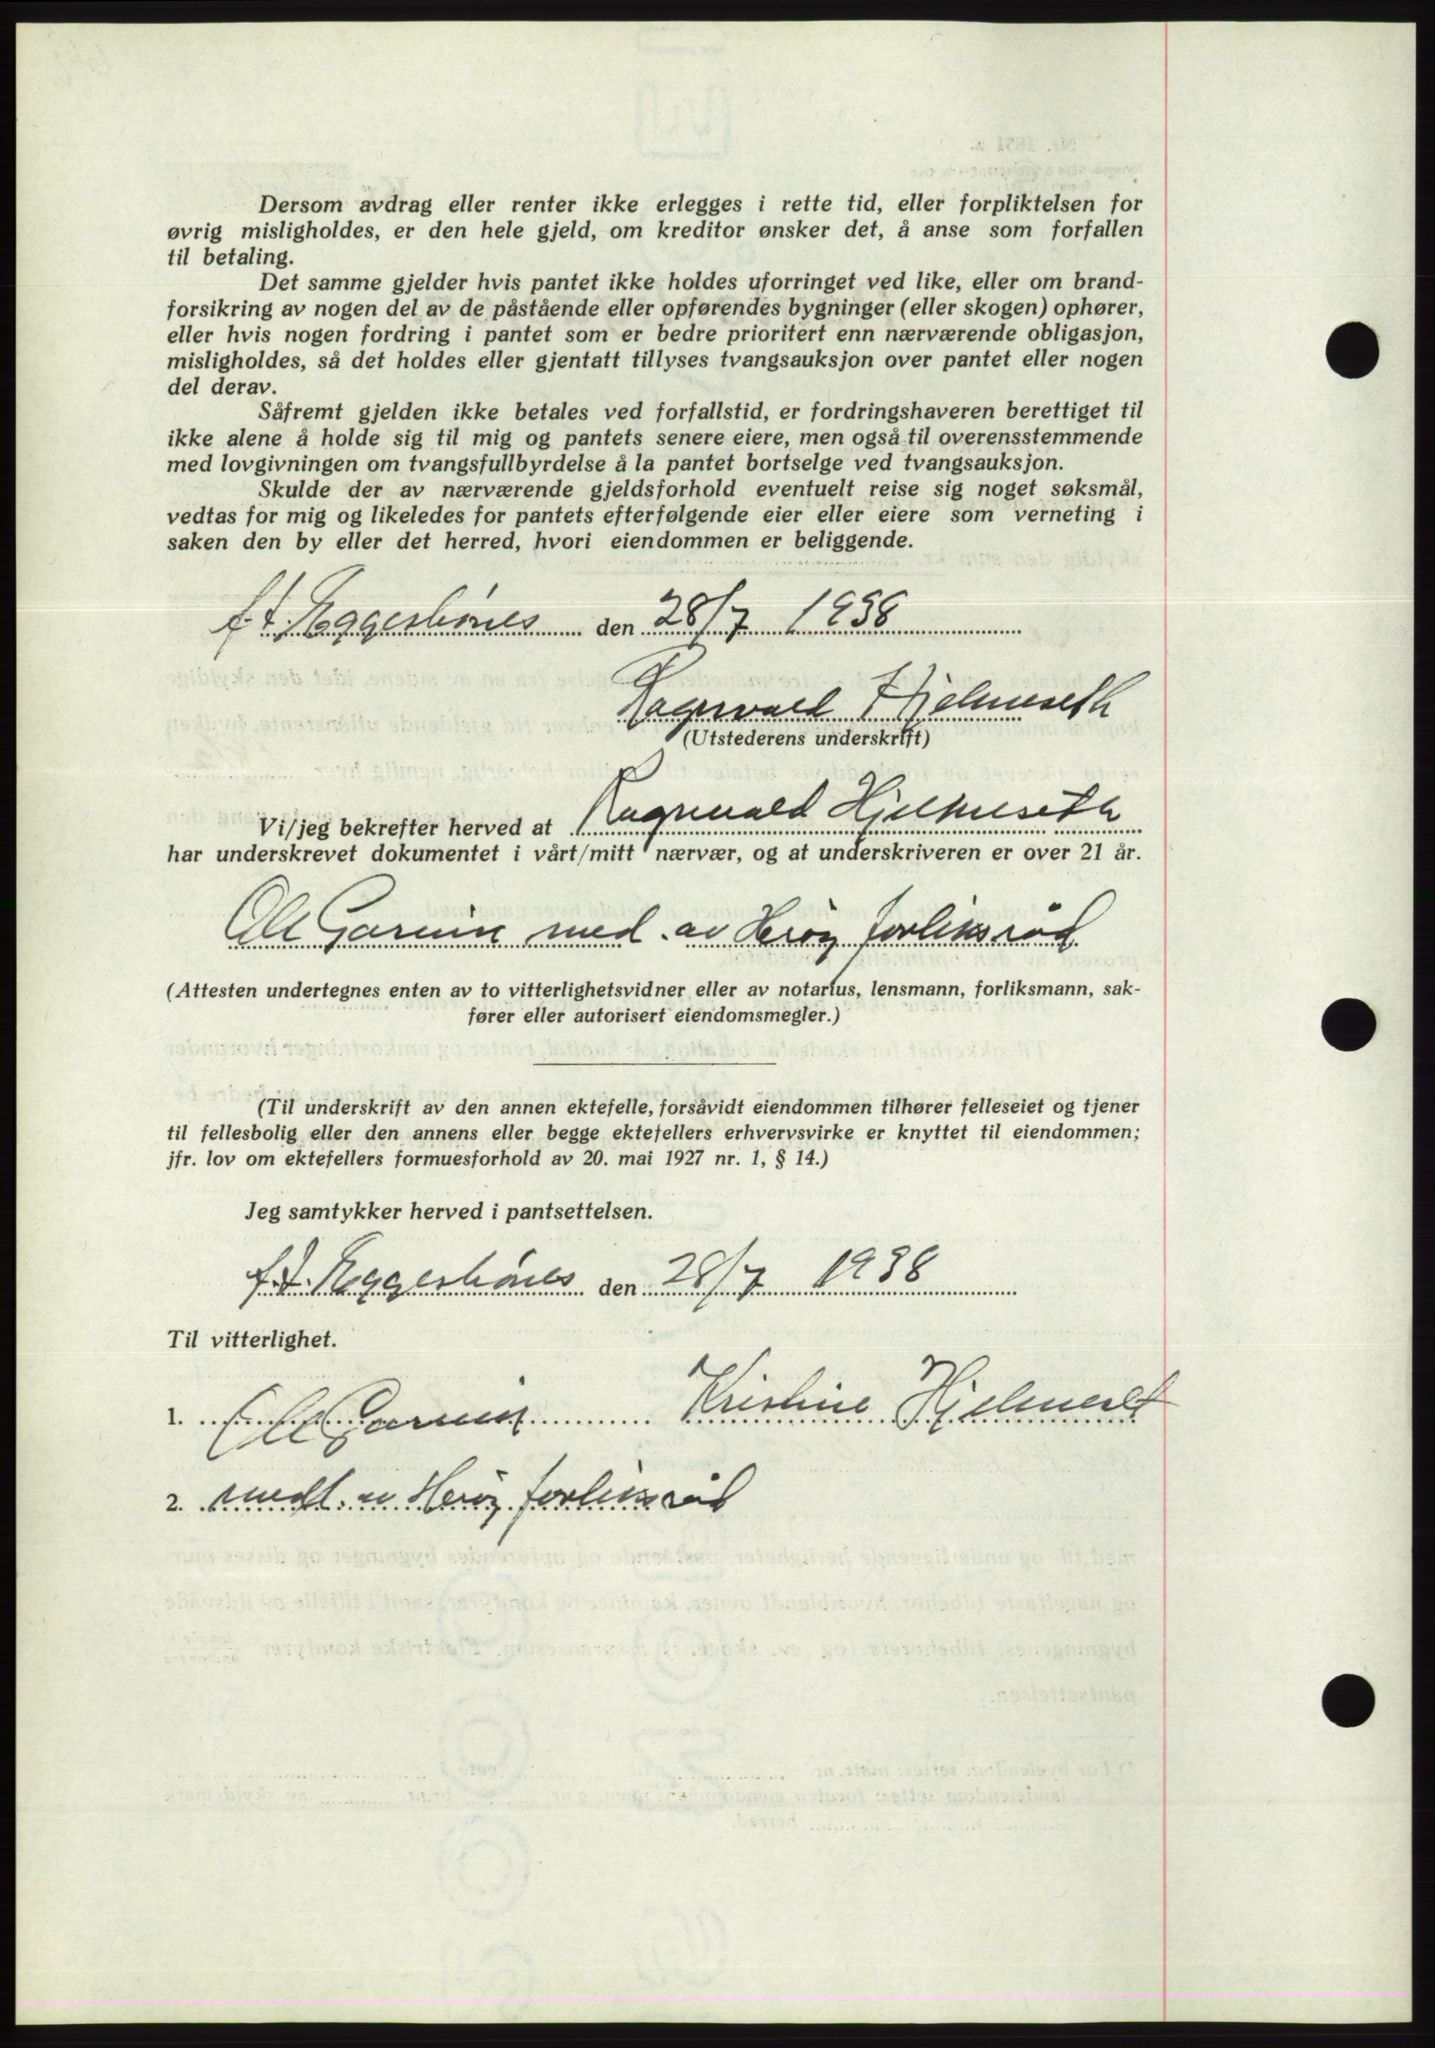 Dersom avdrag eller renter ikke erlegges i rette tid, eller forpliktelsen for
øvrig misligholdes, er den hele gjeld, om kreditor ønsker det, å anse som forfallen
til betaling.
Det samme gjelder hvis pantet ikke holdes uforringet ved like, eller om brand-
forsikring av nogen del av de påstående eller opførendes bygninger (eller skogen) ophører,
eller hvis nogen fordring i pantet som er bedre prioritert enn nærværende obligasjon,
misligholdes, så det holdes eller gjentatt tillyses tvangsauksjon over pantet eller nogen
del derav.
Såfremt gjelden ikke betales ved forfallstid, er fordringshaveren berettiget til
ikke alene å holde sig til mig og pantets senere eiere, men også til overensstemmende
med lovgivningen om tvangsfullbyrdelse å la pantet bortselge ved tvangsauksjon.
Skulde der av nærværende gjeldsforhold eventuelt reise sig noget søksmål,
vedtas for mig og likeledes for pantets efterfølgende eier eller eiere som verneting i
saken den by eller det herred, hvori eiendommen er beliggende.
f. t. Eggesbönes den 28/7 1938
Ragnvald Hjelmeseth
(Utstederens underskrift)
Vi/jeg bekrefter herved at Ragnvald Hjelmeseth
har underskrevet dokumentet i vårt/mitt nærvær, og at underskriveren er over 21 år.
Ole Garnvin med. av Herøy forliksråd
(Attesten undertegnes enten av to vitterlighetsvidner eller av notarius, lensmann, forliksmann, sak-
fører eller autorisert eiendomsmegler.)
(Til underskrift av den annen ektefelle, forsåvidt eiendommen tilhører felleseiet og tjener
til fellesbolig eller den annens eller begge ektefellers erhvervsvirke er knyttet til eiendommen;
jfr. lov om ektefellers formuesforhold av 20. mai 1927 nr. 1, § 14.)
Jeg samtykker herved i pantsettelsen.
f. t. Eggesbönes den 28/7 1938
Til vitterlighet.
1. Ole Garnvin Kristine Hjelmeseth
2. medl. av Herøy forliksråd